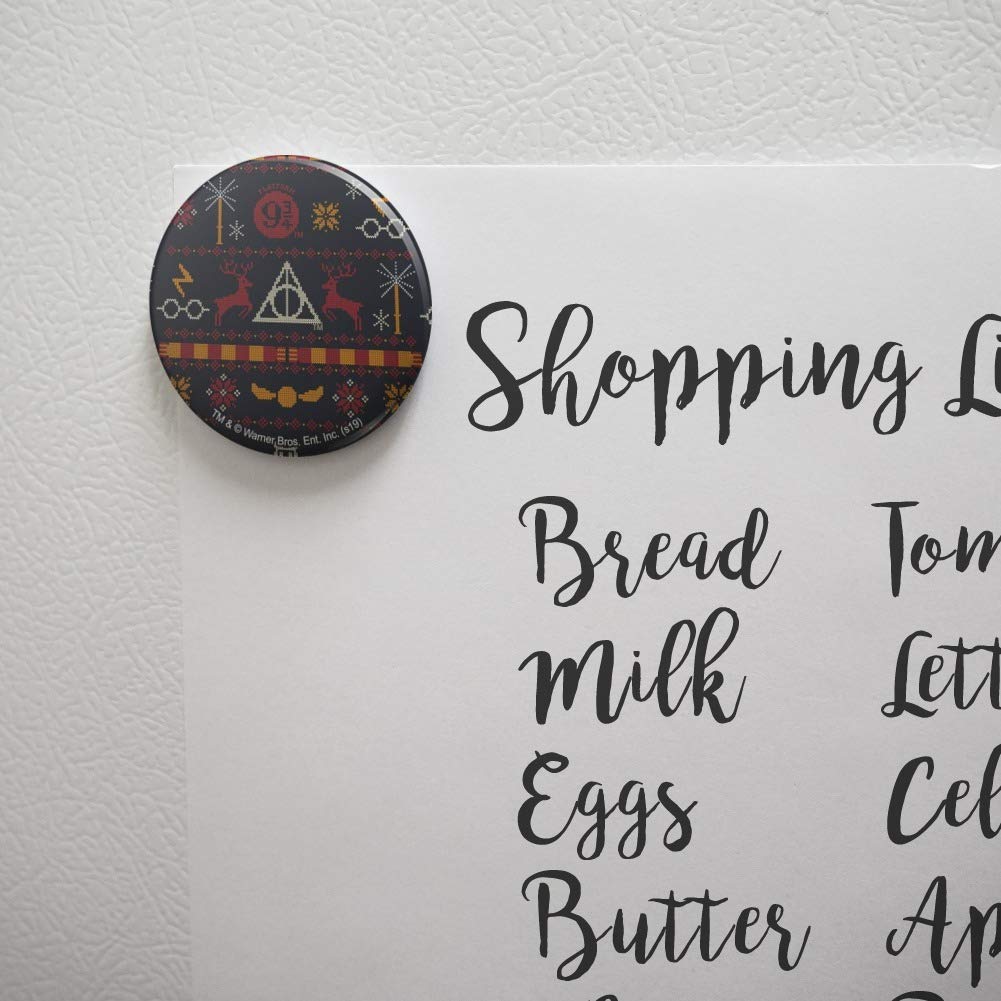 PLATFORM
9 3/4
TM
TM
TM & © Warner Bros. Ent. Inc. (s19)
Shopping Li
Bread Tom
Milk Lett
Eggs Cel
Butter Ap